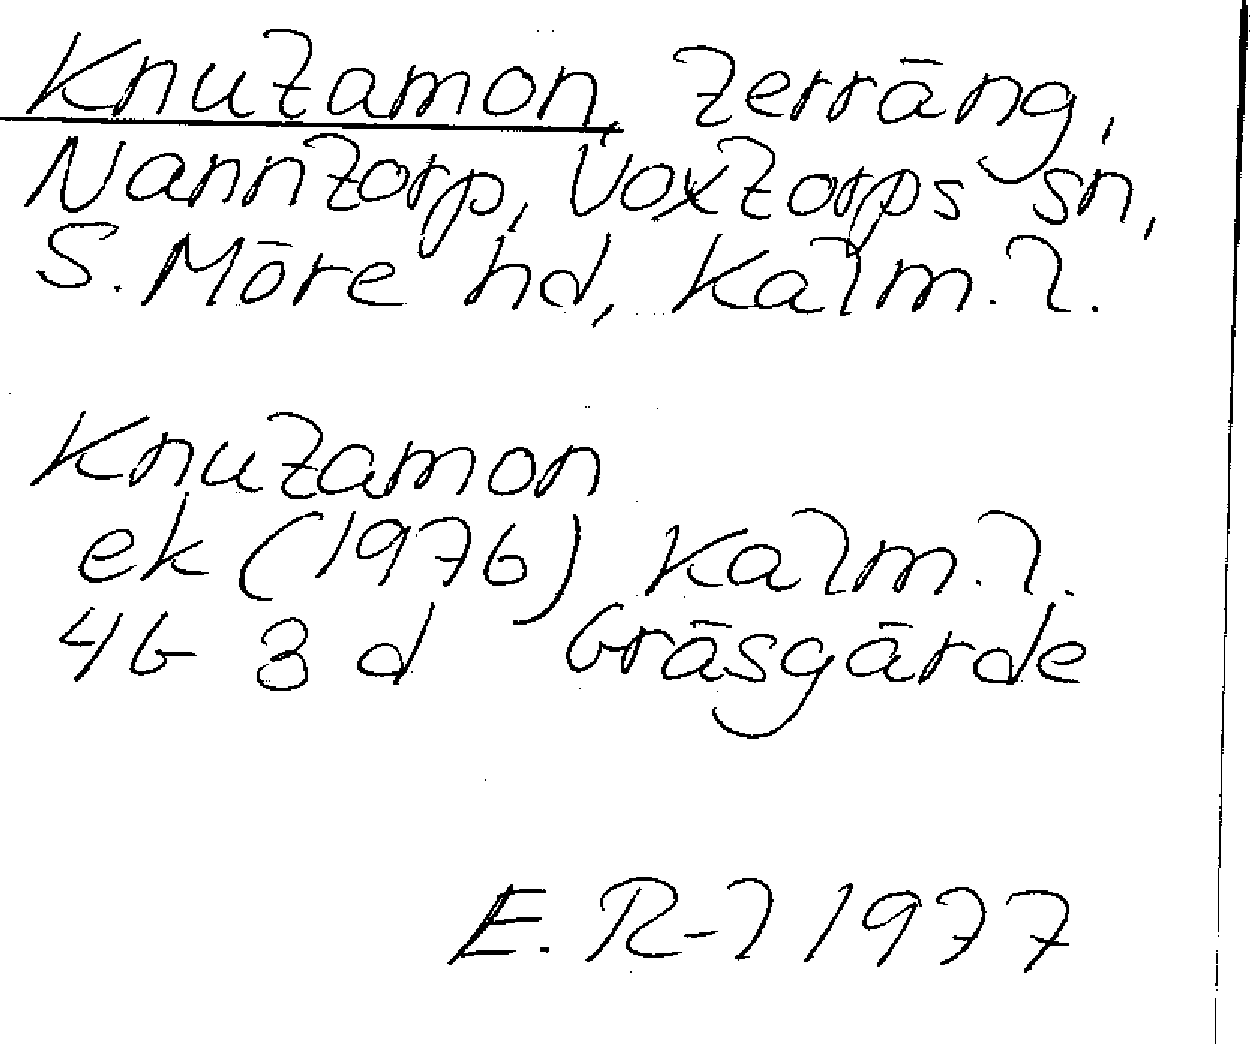 Knutamon, terräng,
Nanntorp, Voxtorps sn,
S. Möre hd, Kalm. l.
Knutamon
ek (1976) Kalm. l.
4G 3d Gräsgärde
E. R-l 1977